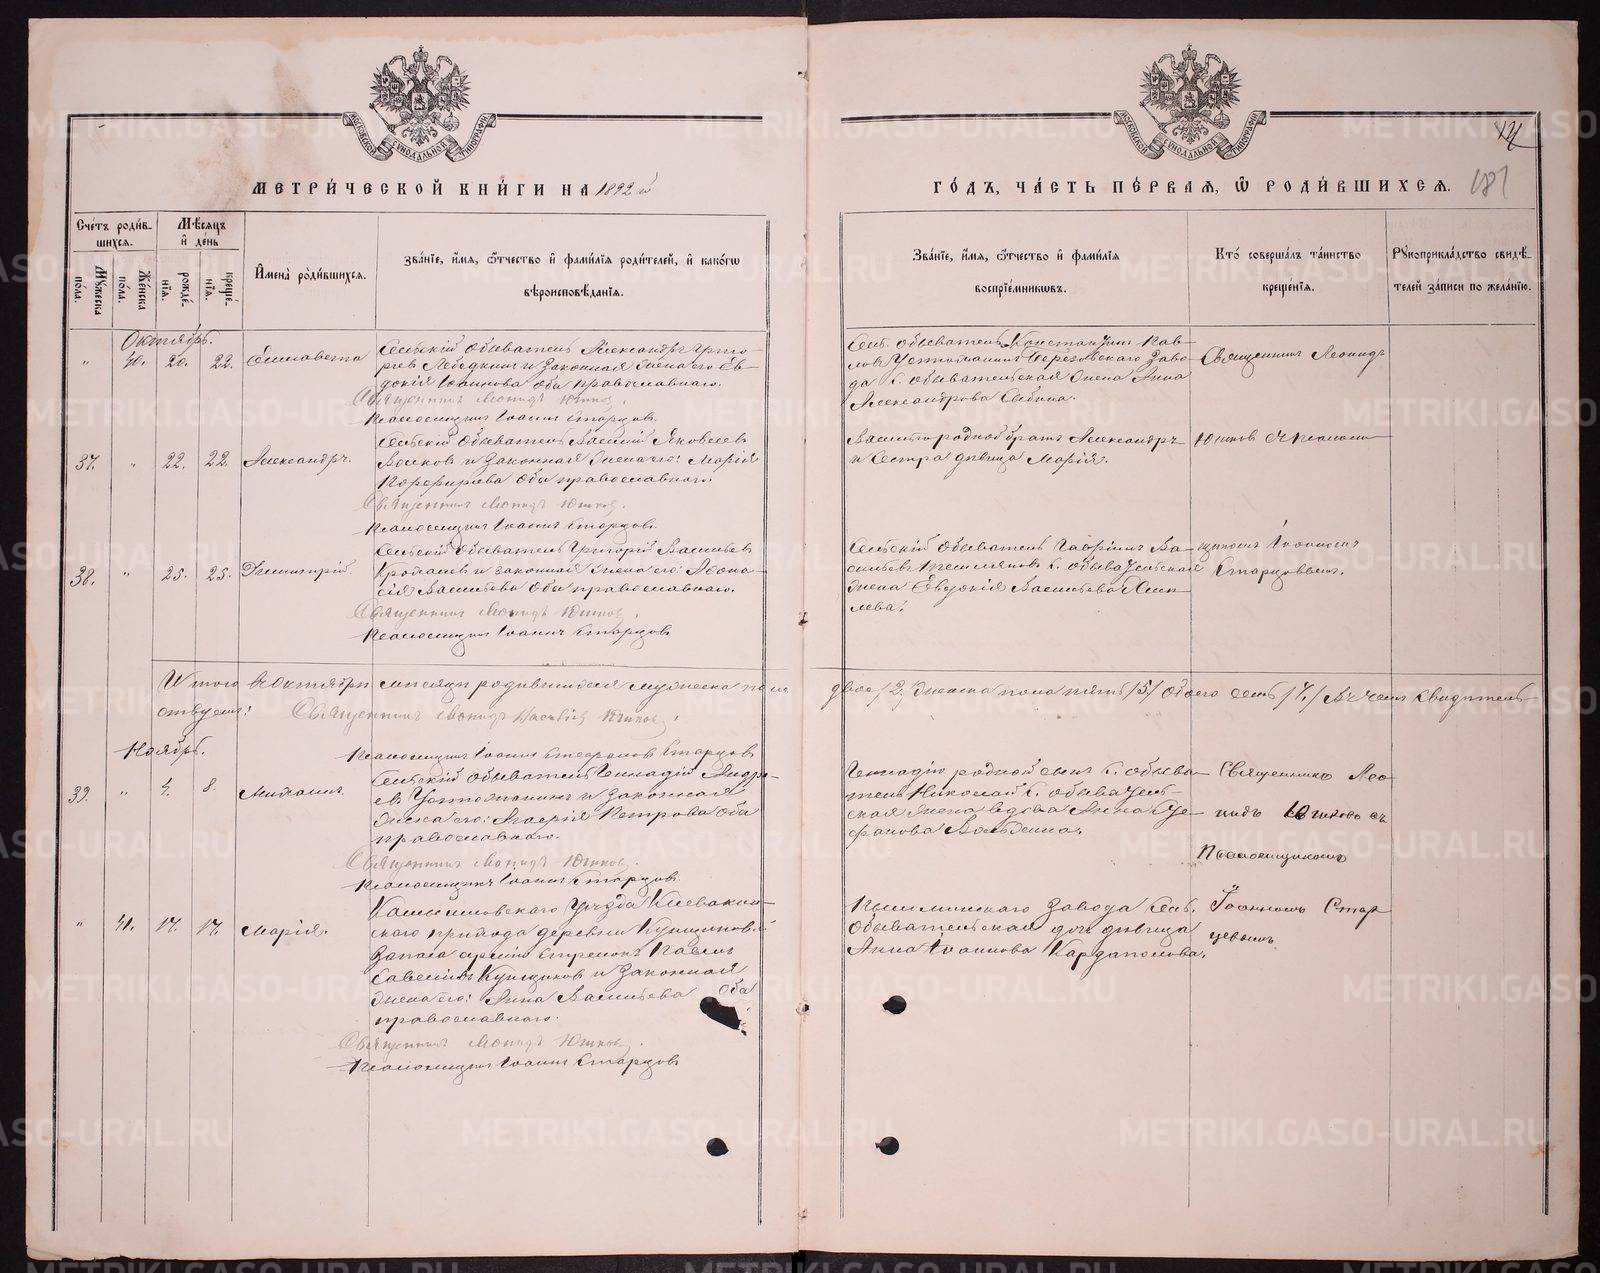 МЕТРИ́ЧЕСКОЙ КНИ́ГИ НА 1892 й
ГО́ДЪ, ЧА́СТЬ ПЕ́РВАЯ, Ѿ РОДИ́ВШИХСЯ.
181
МОСКОВСКОЙ СѴНОДАЛЬНОЙ ТИПОГРАФІИ
МОСКОВСКОЙ СѴНОДАЛЬНОЙ ТИПОГРАФІИ
Сче́тъ роди́в-
шихся.
Мꙋжеска
по́ла.
Же́нска
по́ла.
Мѣ́сяцъ
и҆ де́нь
рожде́-
нїѧ.
креще́-
нїѧ.
И҆мена̀ роди́вшихся.
Зва́нїе, и҆́мя, ѻ҆́тчество и҆ фами́лїя роди́телей, и҆ како́гѡ
вѣроисповѣ́данїѧ.
Зва́нїе, и҆́мя, ѻ҆́тчество и҆ фами́лїя
воспрїе́мникѡвъ.
Кто̀ соверша́лъ та́инство
креще́нїѧ.
Рꙋкоприкла́дство свидѣ́-
телей за́писи по жела́нїю.
Октябрь.
" 40. 20. 22. Елисавета
Сельскій обыватель Александръ Григо-
рьевъ Лебедкинъ и законная жена его Ев-
докія Іоаннова оба православнаго.
Священникъ Леонидъ Юшковъ.
Псаломщикъ Іоаннъ Старцовъ.
Сель. обыватель Константинъ Пав-
ловъ Устюжанинъ Березовскаго Заво-
да С. обывательская жена Анна
Александрова
Священникъ Леонидъ
37. " 22. 22. Александръ.
Сельскій обыватель Василій Яковлевъ
Волковъ и законная жена его: Марія
Порфирьева оба православнаго.
Священникъ Леонидъ Юшковъ.
Псаломщикъ Іоаннъ Старцовъ.
родной братъ Александръ
и сестра дѣвица Марія.
Юшковъ съ псалом-
38. " 25. 25. Димитрій
Сельскій обыватель Григорій Васильевъ
и законная жена его: Афона-
сія Васильева оба православнаго.
Священникъ Леонидъ Юшковъ.
Псаломщикъ Іоаннъ Старцовъ
Сельскій обыватель Гавріилъ Ва-
сильевъ С. обывательская
жена Евдокія Васильева
лева.
щикомъ Іоанномъ
Старцовымъ.
Итого въ Октябрѣ мѣсяцѣ родившихся мужеска пола
двое /2/, женска пола пять /5/ обоего семь /7/ Въ чемъ свидѣтель-
ствуемъ:
Священникъ Леонидъ Юшковъ.
Псаломщикъ Іоаннъ Стефановъ Старцовъ.
Ноябрь.
39. " 4. 8. Михаилъ.
Сельскій обыватель Геннадій Андре-
евъ Устюжанинъ и законная
жена его: Петрова оба
православнаго.
Священникъ Леонидъ Юшковъ.
Псаломщикъ Іоаннъ Старцовъ.
Геннадію родной сынъ С. обыва-
тель Николай С. обыватель-
ская жена вдова Анна Сте-
фанова
Священникъ Лео-
нидъ Юшковъ съ
Псаломщикомъ
" 41. 17. 17. Марія.
Камышловскаго Уѣзда Клевакин-
скаго прихода деревни Купщиковой
запаса арміи стрѣлокъ Павелъ
Савельевъ Купщиковъ и законная
жена его: Анна Васильева оба
православнаго.
Священникъ Леонидъ Юшковъ.
Псаломщикъ Іоаннъ Старцовъ
Пышминскаго Завода Сель.
обывательская дочь дѣвица
Анна Іоаннова Кардаполова.
Іоанномъ Стар-
цевымъ
METRIKI.GASO-URAL.RU